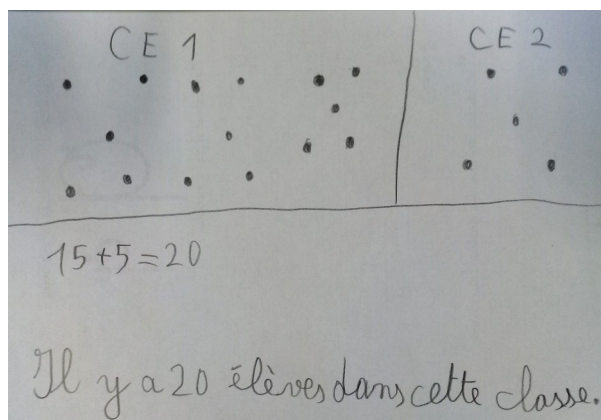 CE 1 CE 2
15+5=20
Il y a 20 élèves dans cette classe.